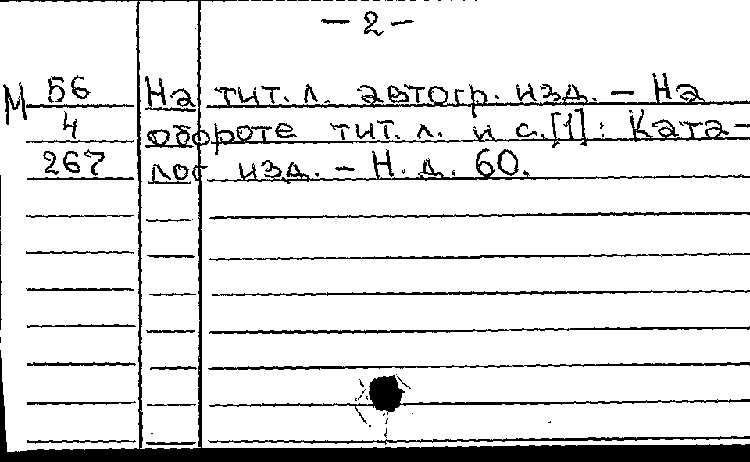 — 2 —
М 56 На тит. л. автогр. изд. — На
4 обороте тит. л. и с. [1]: Ката-
267 лог изд. — Н. д. 60.